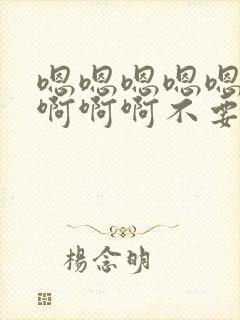 嗯嗯嗯嗯嗯
啊啊啊不要
楊念明